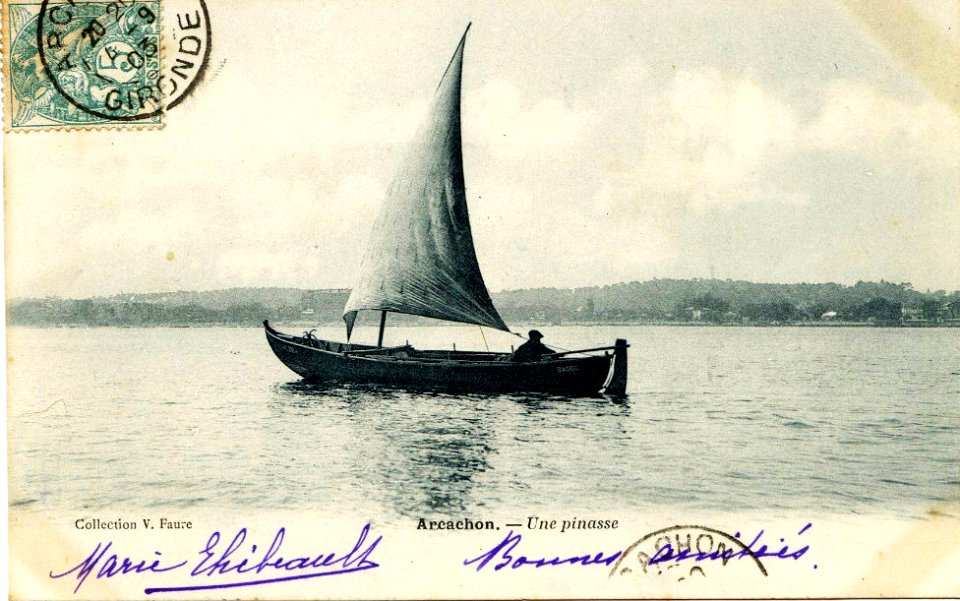 ARC
20-20
1-4
03
5
POSTES
GIRONDE
Collection V. Faure
Arcachon. — Une pinasse
Marie Thibeault Bonnes amitiés.
CACHON